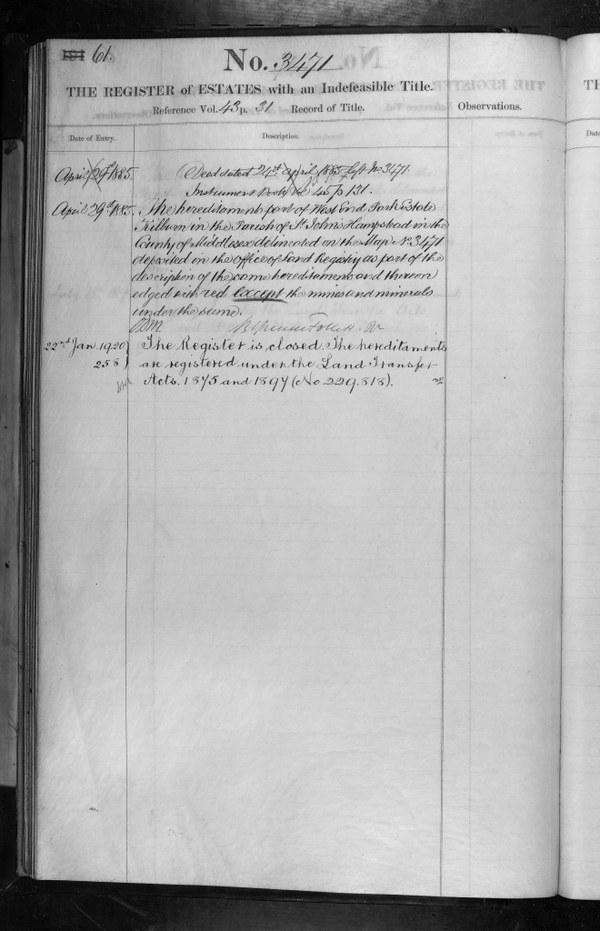 61.
No. 3471
THE REGISTER of ESTATES with an Indefeasible Title.
Reference Vol. 43 p. 31 Record of Title.
Observations.
Date of Entry.
Description.
April 29th 1885. Deed dated 24th April 1885 left No 3471.
Instrument Vol. 45 p 131.
April 29th 1885. The hereditaments part of West End Park Estate
Kilburn in the Parish of St. John Hampstead in the
County of Middlesex delineated on the Map No 3471
deposited in the office of Land Registry as part of the
description of the same hereditaments and thereon
edged with red except the mines and minerals
under the same.
22nd Jan 1920 The Register is closed. The hereditaments
258 are registered under the Land Transfer
Acts, 1875 and 1897 (No 229.818).
TH
Date